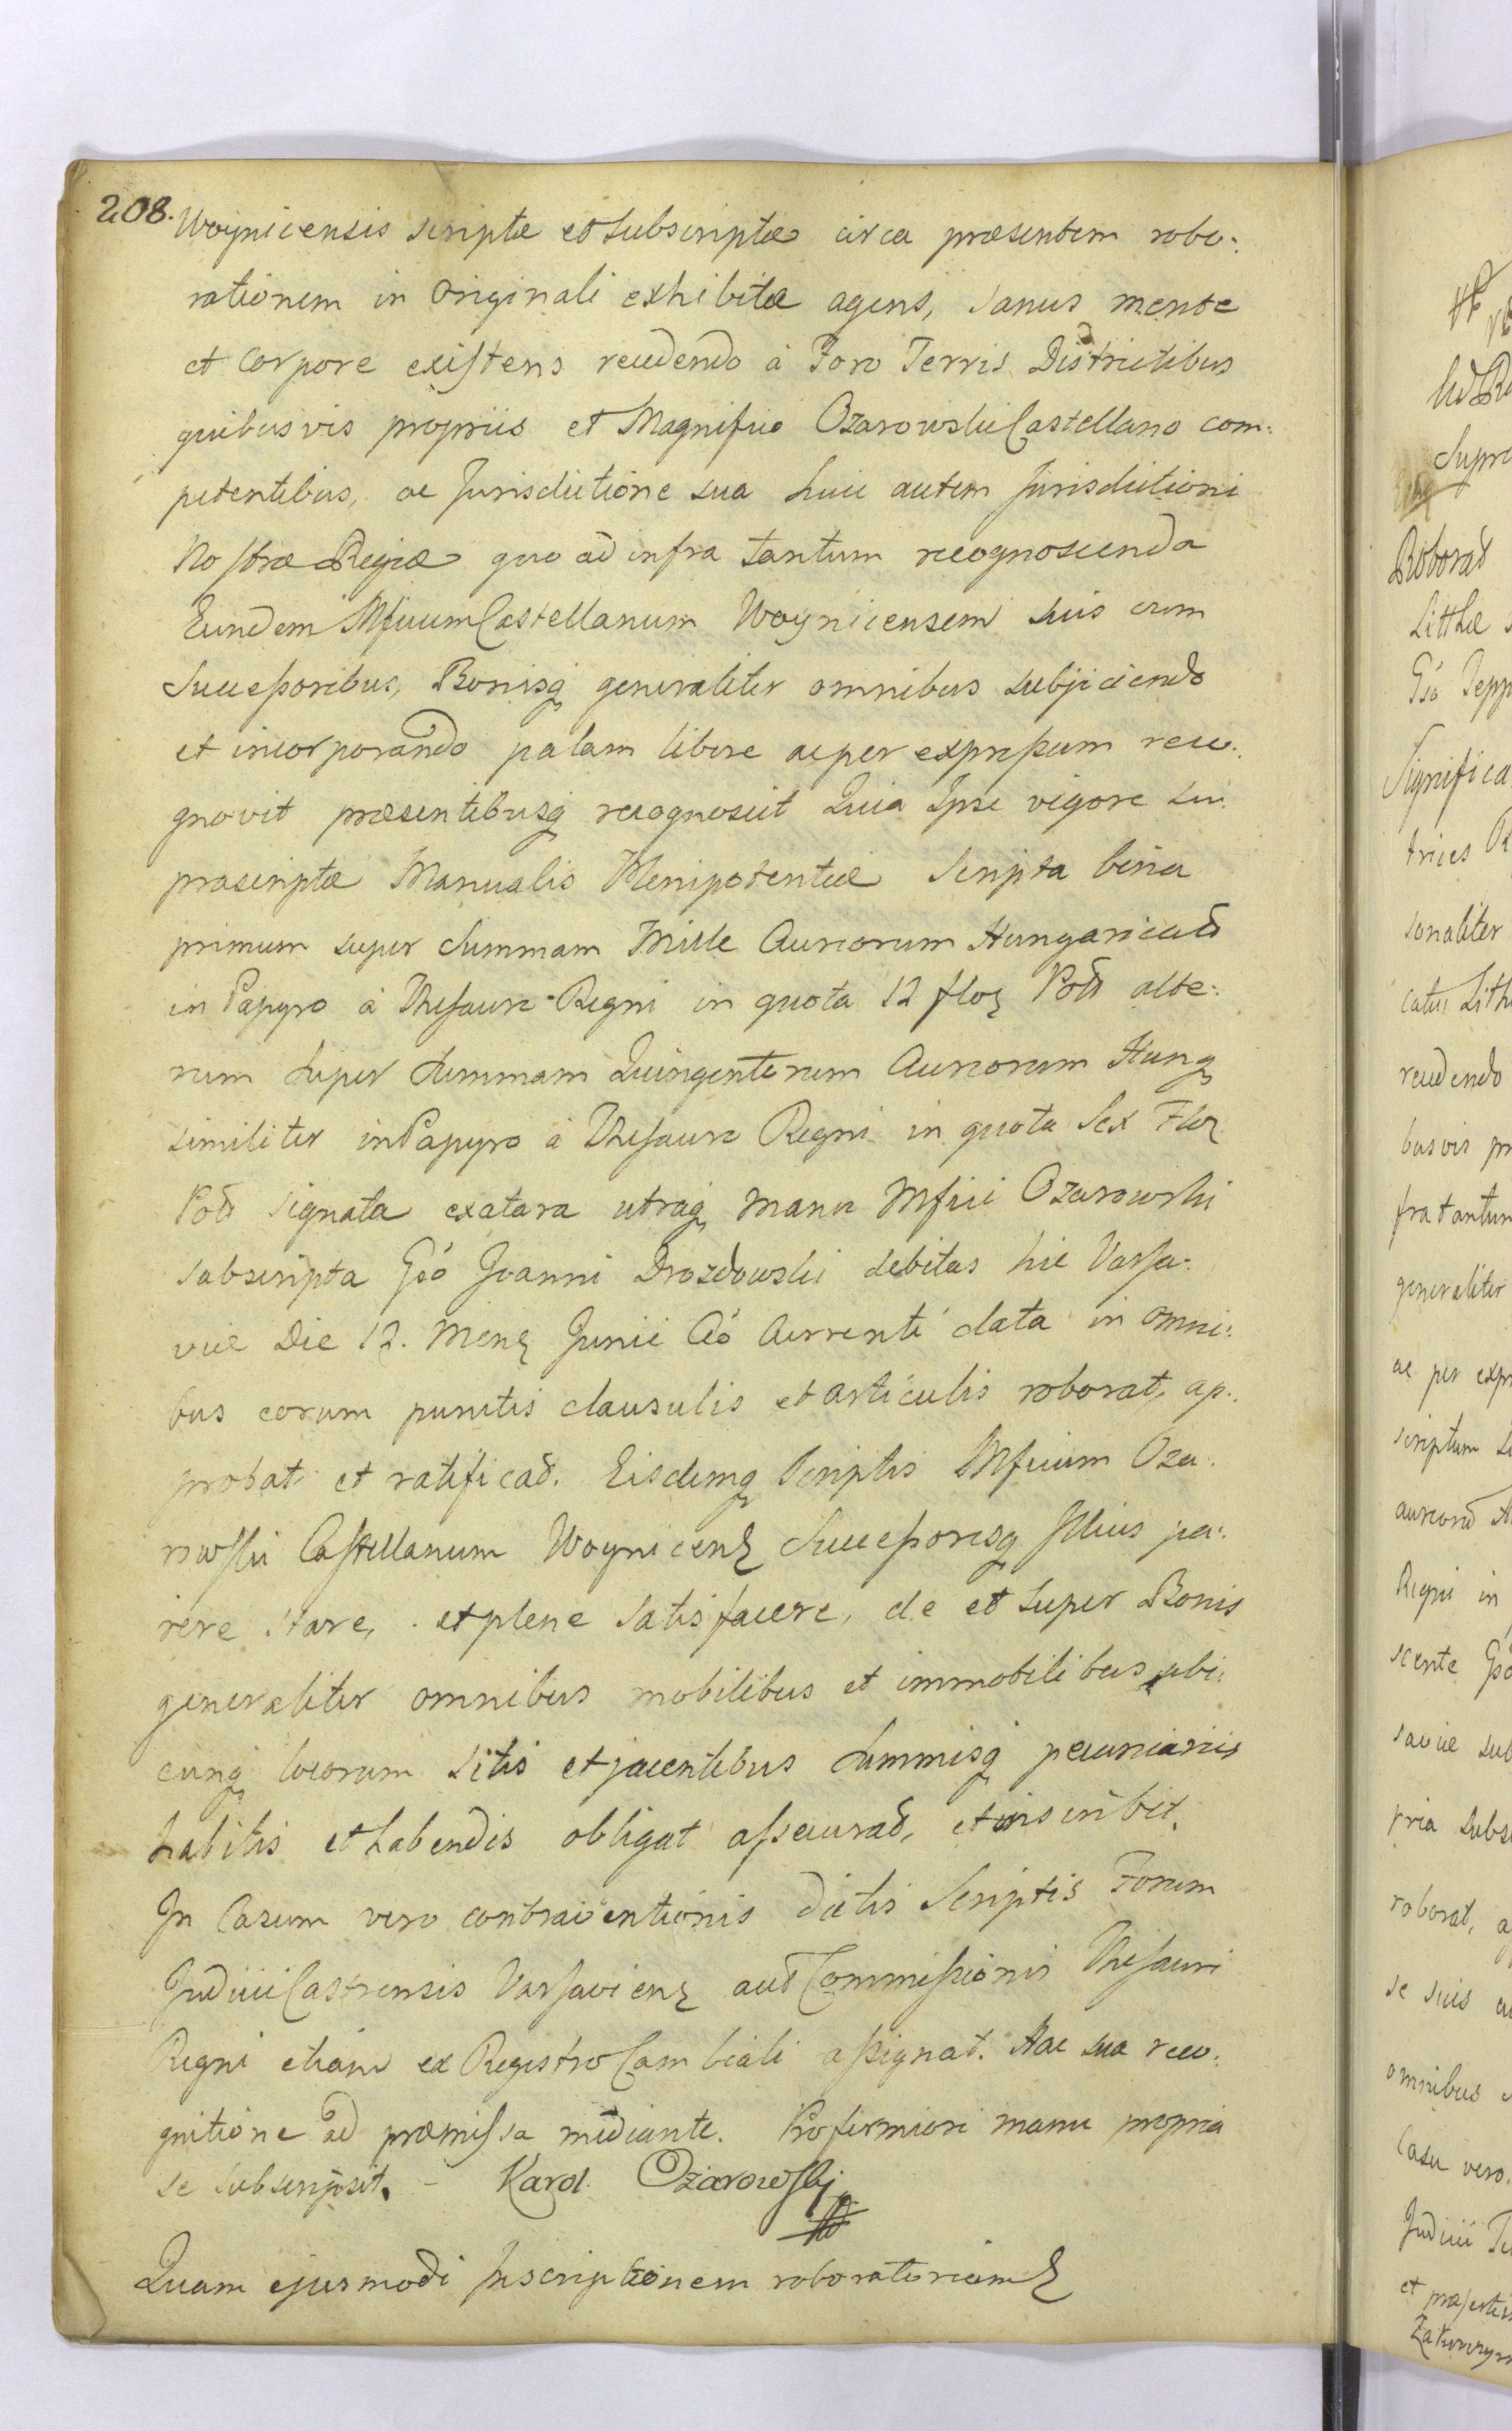 208.
Woynicensis scriptæ et subscriptæ circa præsentem robo:
rationem in Originali exhibitæ agens, sanus mente
et Corpore existens recedendo à Foro Terris Districtibus
quibusvis propriis et Magnifico Ozarowski Castellano com:
petentibus, ac Jurisdictione sua huic autem Jurisdictioni
Nostræ Regiæ quo ad infra tantum recognoscenda
Eundem Mficum Castellanum Woynicensem suis cum
Successoribus, Bonisq generaliter omnibus subjiciendo
et incorporando palam libere ac per expressum reco:
gnovit præsentibusq recognoscit Quia Ipse vigore su:
prascriptæ Manualis Plenipotentiæ Scripta bina
primum super Summam Mille Aureorum Hungaricald
in Papyro à Thesauro Regni in quota 12 flor Pol alte:
rum super Summam Quingentorum Aureorum Hung
similiter in Papyro à Thesauro Regni in quota Sex Flor
Pol signata exatara utraq manu Mfici Ozarowski
subscripta Gso Joanni Drozdowski debitas hic Varsa:
viæ Die 12. Mens Junii Aó Currenti data in omni:
bus eorum punctis clausulis et articulis roborat, ap:
probat et ratificat. Eisdemq Scriptis Mficum Oza:
rowski Castellanum Woynicens Successoresq Illius pa:
rere stare, et plene satisfacere, de et super Bonis
generaliter omnibus mobilibus et immobilibus ubi:
cunq locorum sitis et jacentibus Summisq pecuniariis
habitis et habendis obligat assecurat, et inscribit.
In Casum vero contraventionis dictis Scriptis Forum
Judicii Castrensis Varsaviens aut Commissionis Thesauri
Regni etiam ex Registro Cambiali assignat. Hac sua reco:
gnitione ad præmissa mediante. Pro firmiori manu propria
se subscripsit. - Karol Ożarowski
Quam ejusmodi Inscriptionem roboratoriam